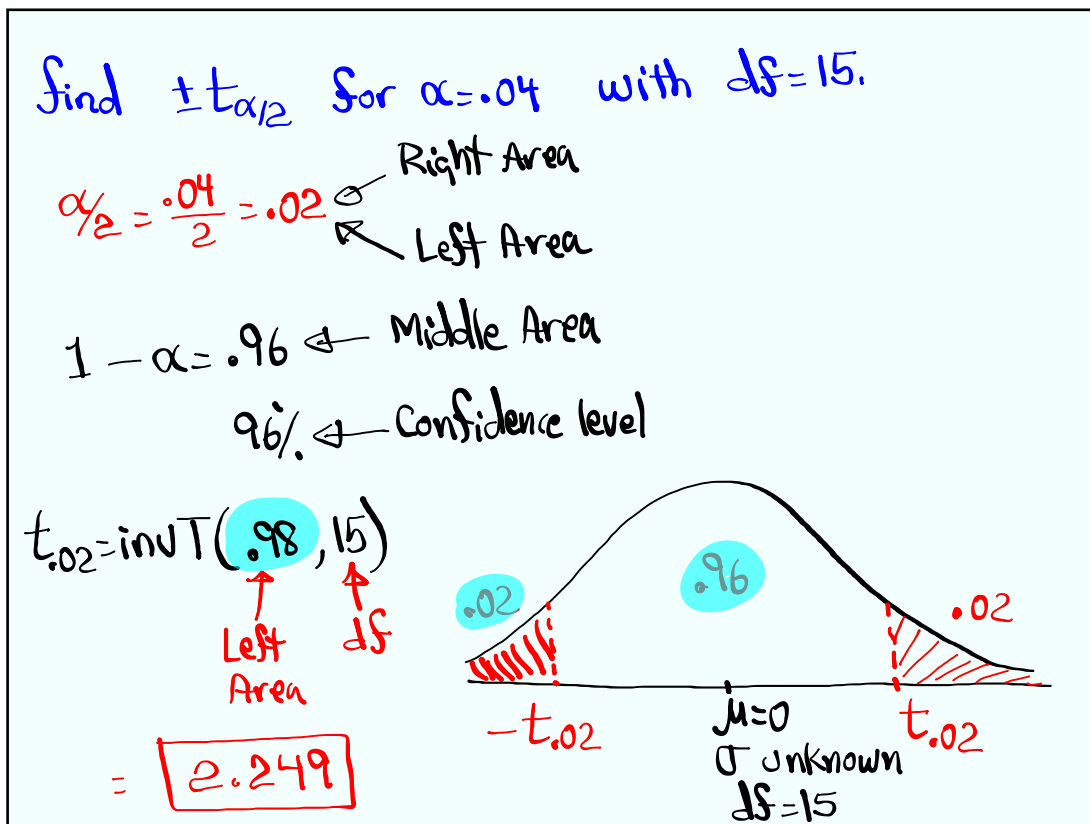 find ±tα/2 for α=.04 with df=15.
Right Area
α/2 = .04/2 = .02
Left Area
1 - α = .96 ← Middle Area
96% ← Confidence level
t.02 = invT(.98, 15)
Left Area
df
= 2.249
.02
.96
.02
-t.02
μ=0
t.02
σ unknown
df=15